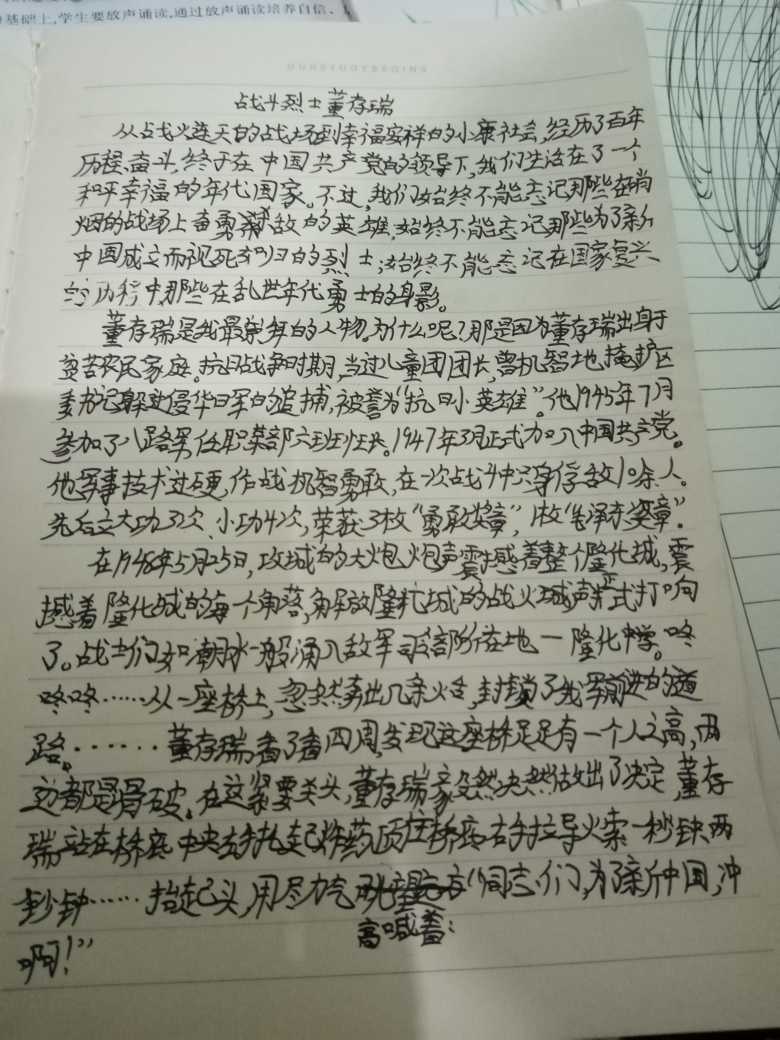 基础上,学生要放声诵读,通过放声诵读培养自信、
OURSTORYBEGINS
战斗烈士董存瑞
从战火连天的战场到幸福安祥的小康社会,经历了百年
历程奋斗,终于在中国共产党的领导下,我们生活在了一个
和平幸福的年代国家。不过,我们始终不能忘记那些在硝
烟的战场上奋勇杀敌的英雄,始终不能忘记那些为了新
中国成立而视死如归的烈士;始终不能忘记在国家复兴
的历程中那些在乱世年代勇士的身影。
董存瑞是我最崇拜的人物。为什么呢?那是因为董存瑞出身于
贫苦农民家庭。抗日战争时期,当过儿童团团长,曾机智地掩护区
委书记躲过侵华日军的追捕,被誉为“抗日小英雄”。他1945年7月
参加了八路军任职某部六班班长。1947年3月正式加入中国共产党。
他军事技术过硬,作战机智勇敢,在一次战斗中只身俘敌10余人。
先后立大功3次、小功4次,荣获3枚“勇敢奖章”,1枚“毛泽东奖章”。
在1948年5月25日,攻城的大炮,炮声震撼着整个隆化城,震
撼着隆化城的每个角落,解放隆化城的战火声正式打响
了。战士们如潮水一般涌入敌军司令部所在地一隆化中学。咚
咚咚……从一座桥上,忽然奔出几条火舌,封锁了我军前进的道
路。……董存瑞看了看四周,发现这座桥足足有一个人之高,两
边都是骨破。在这紧要关头,董存瑞毅然决然做出了决定,董存
瑞站在桥底中央左手托起炸药顶住桥底右手拉导火索一秒钟两
秒钟……抬起头,用尽力气“同志们,为了新中国,冲
高喊着:
啊!”